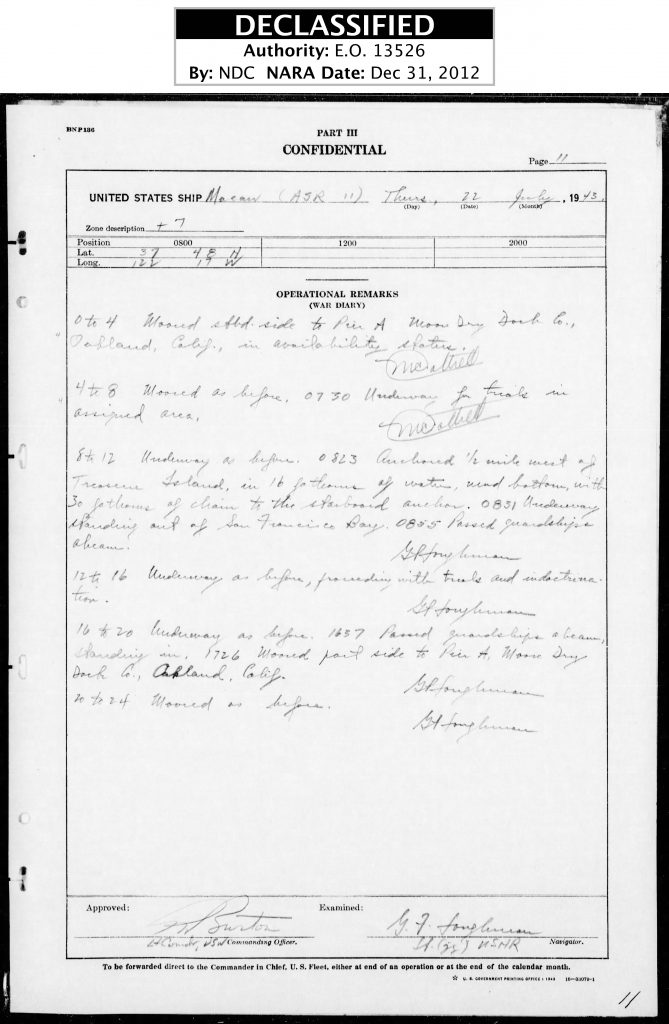 DECLASSIFIED
Authority: E.O. 13526
By: NDC NARA Date: Dec 31, 2012
BNP136
PART III
CONFIDENTIAL
Page 11
UNITED STATES SHIP Macaw (ASR 11) Thurs, 22 July, 1943.
(Day) (Date) (Month)
Zone description +7
Position 0800 1200 2000
Lat. 37 48 N
Long. 122 17 W
OPERATIONAL REMARKS
(WAR DIARY)
0 to 4 Moored stbd. side to Pier A Moore Dry Dock Co.,
Oakland, Calif., in availability status.
4 to 8 Moored as before. 0730 Underway for trials in
assigned area.
8 to 12 Underway as before. 0823 Anchored 1/2 mile west of
Treasure Island, in 16 fathoms of water, mud bottom, with
30 fathoms of chain to the starboard anchor. 0831 Underway
standing out of San Francisco Bay. 0855 Passed guardships
abeam.
12 to 16 Underway as before, proceeding with trials and indoctrina-
tion.
16 to 20 Underway as before. 1637 Passed guardships abeam,
standing in. 1726 Moored port side to Pier A, Moore Dry
Dock Co., Oakland, Calif.
20 to 24 Moored as before.
Approved: Examined:
Burton G. F.
Lt Comdr, USN Commanding Officer. Lt (jg) USNR Navigator.
To be forwarded direct to the Commander in Chief, U. S. Fleet, either at end of an operation or at the end of the calendar month.
U. S. GOVERNMENT PRINTING OFFICE : 1943
11